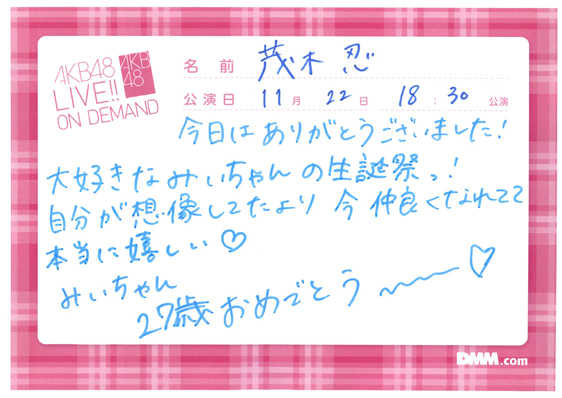 AKB48
LIVE!!
ON DEMAND
AKB
48
名前 茂木 忍
公演日 11月 22日 18:30 公演
今日はありがとうございました!
大好きなみぃちゃんの生誕祭っ!
自分が想像してたより 今 仲良くなれてて
本当に嬉しい♡
みぃちゃん
27歳おめでとう〜♡
DMM.com